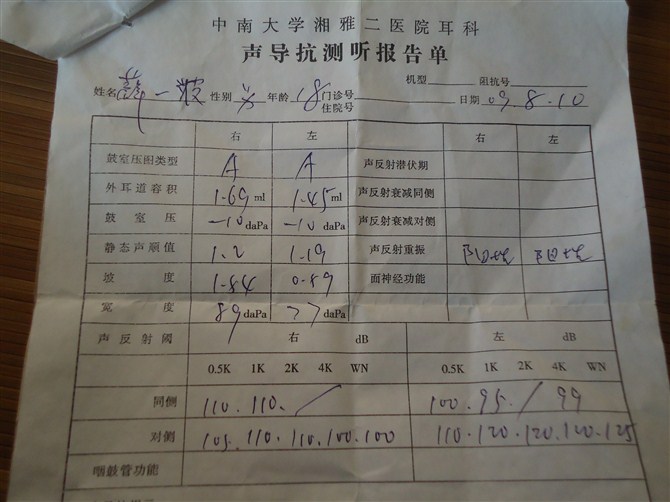 中南大学湘雅二医院耳科
声导抗测听报告单
机型 阻抗号
姓名 性别 年龄 18 门诊号 住院号 日期 09.8.10
右 左 右 左
鼓室压图类型 A A 声反射潜伏期
外耳道容积 1.69 ml 1.45 ml 声反射衰减同侧
鼓室压 -10 daPa -10 daPa 声反射衰减对侧
静态声顺值 1.2 1.19 声反射重振 阳性 阳性
坡度 1.84 0.89 面神经功能
宽度 89 daPa 77 daPa
声反射阈 右 dB 左 dB
0.5K 1K 2K 4K WN 0.5K 1K 2K 4K WN
同侧 110. 110. / 100. 95. / 99
对侧 105. 110. 110. 100. 100 110. 120. 120. 120. 125
咽鼓管功能